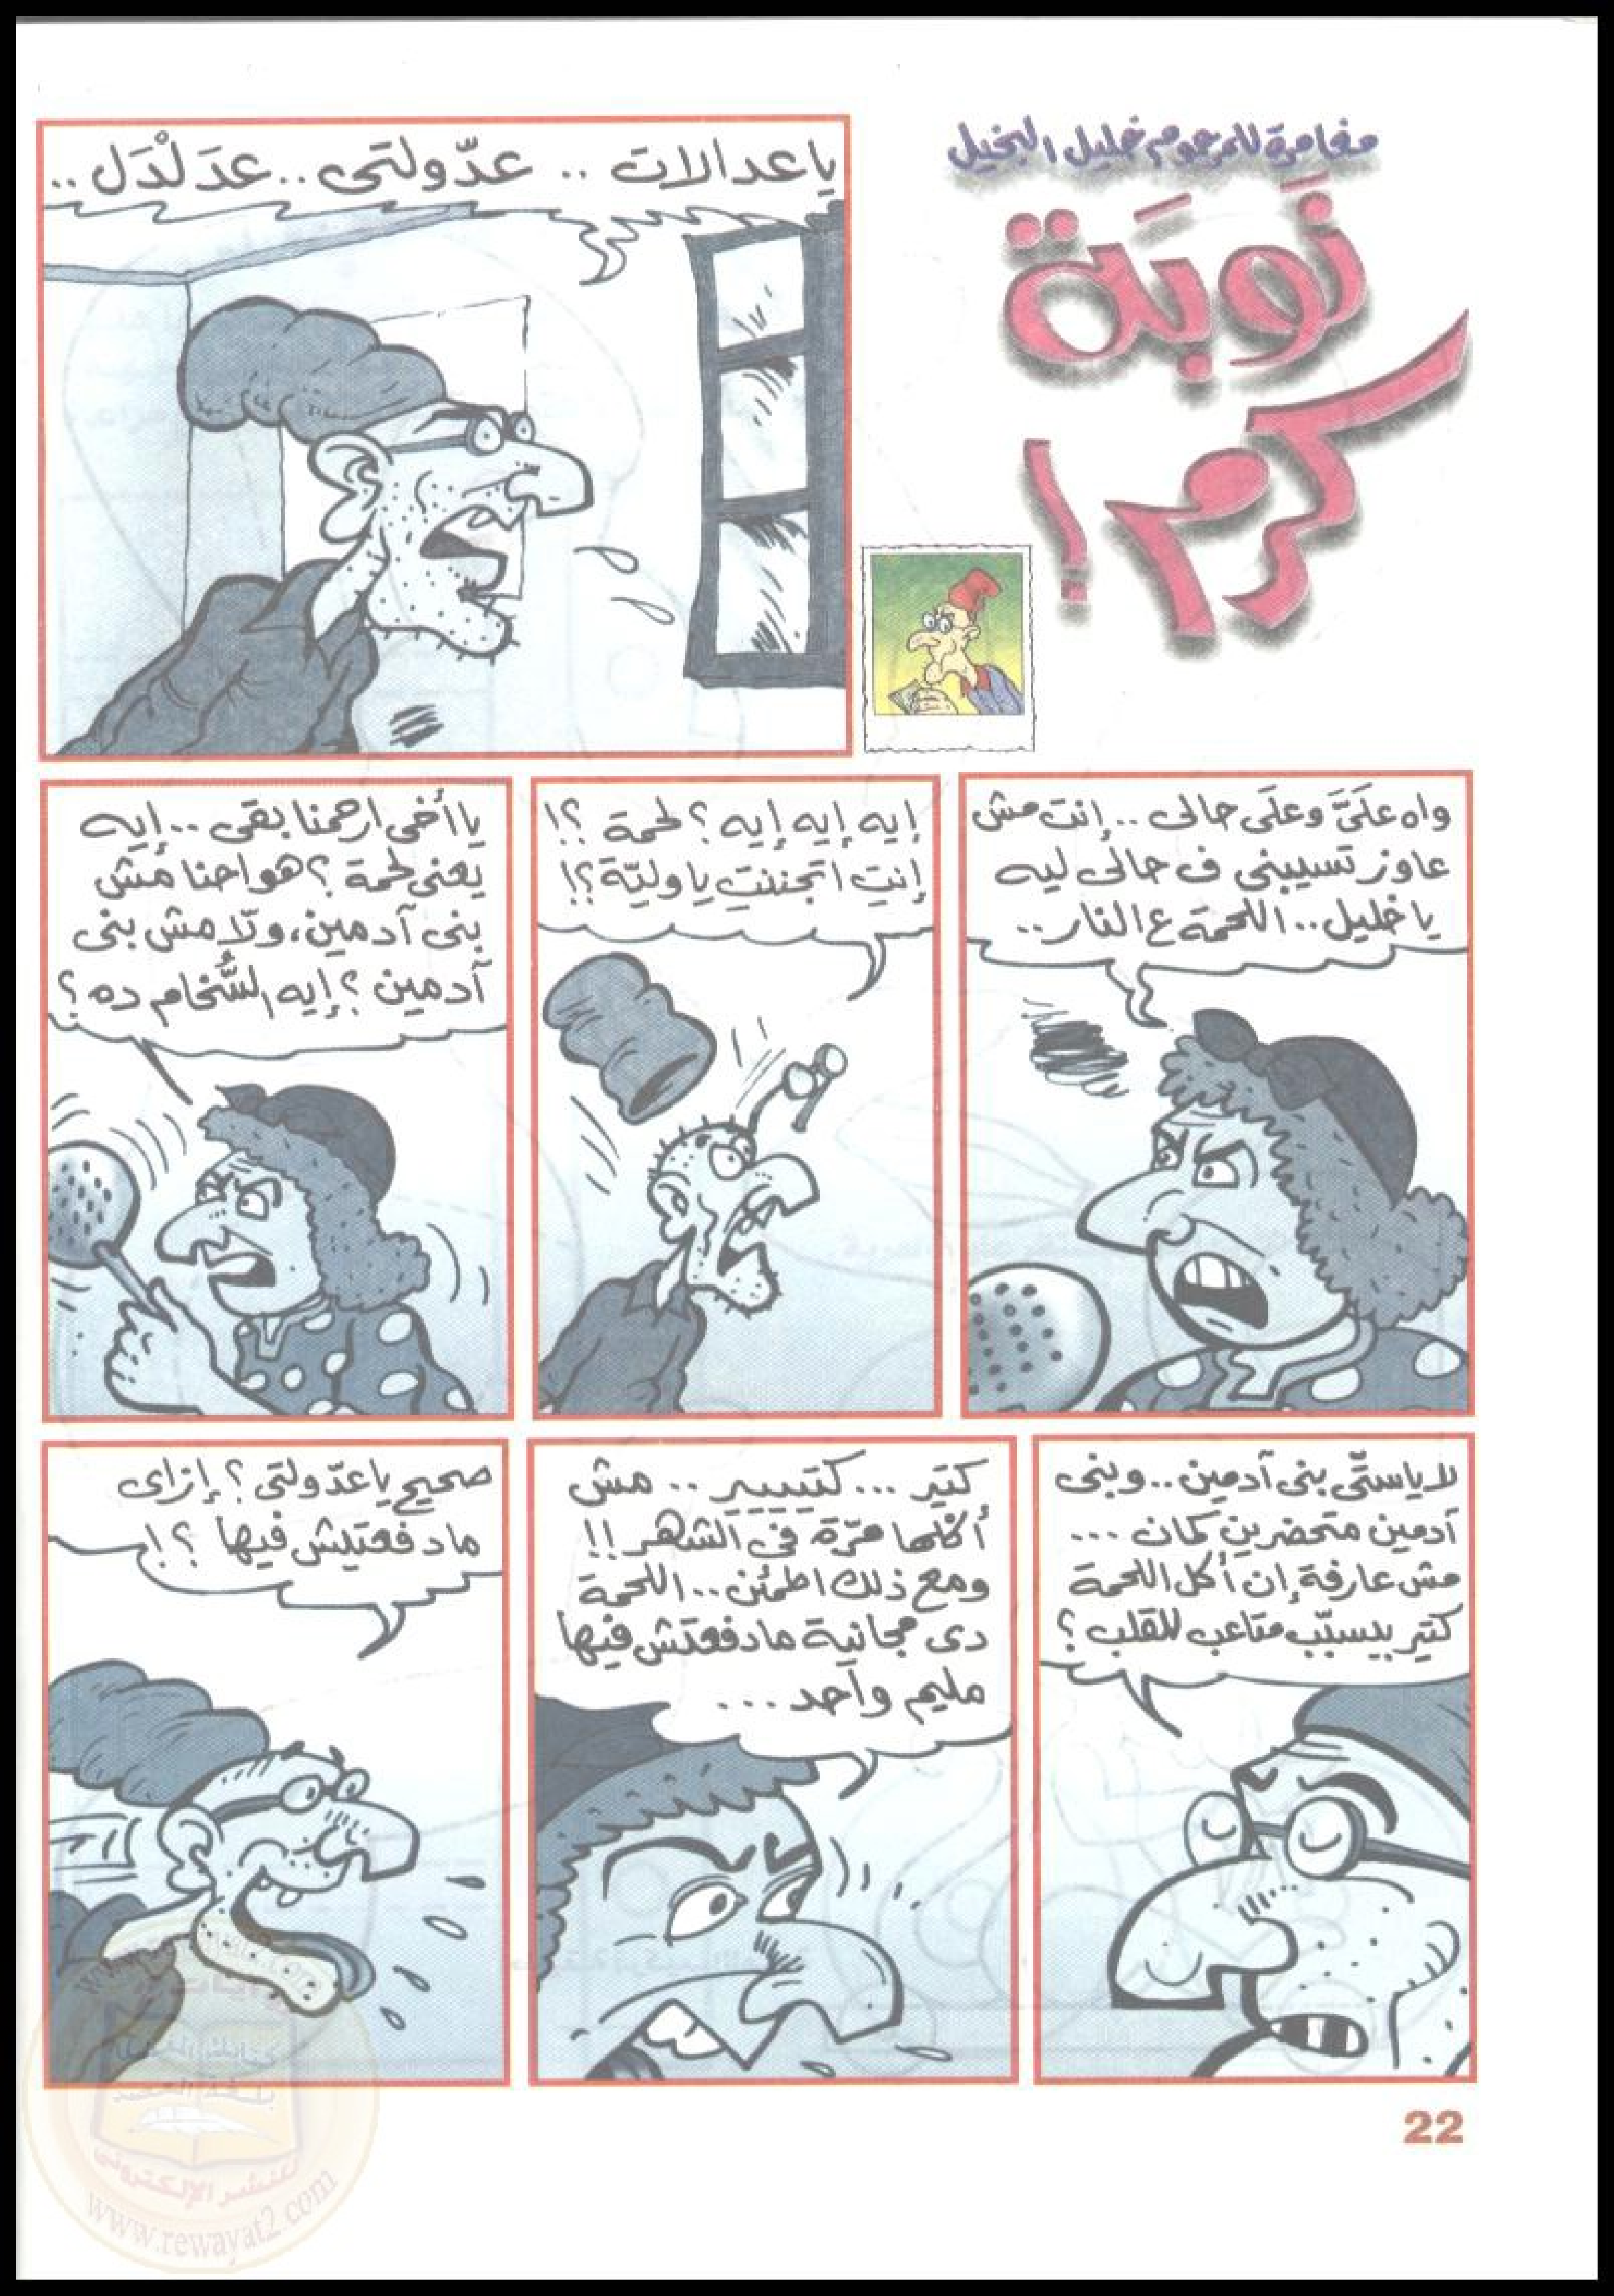 مغامرة للمرحوم خليل البخيل
نَوبَة
كرم!
ياعدالات .. عدّولتى .. عدَلْدَل ..
واه علَىَّ وعلَى حالى .. إنت مش
عاوز تسيبنى ف حالى ليه
ياخليل .. اللحمة ع النار ..
إيه إيه إيه إيه؟ لحمة ؟!
إنتِ اتجننتِ ياوليّة؟!
ياأخى ارحمنا بقى .. إيه
يعنى لحمة؟ هو احنا مش
بنى آدمين، ولّا مش بنى
آدمين؟ إيه السُّخام ده؟
لا ياستّى بنى آدمين .. وبنى
آدمين متحضرين كمان ...
مش عارفة إن أكل اللحمة
كتير بيسبّب متاعب للقلب؟
كتير ... كتيييير .. مش
أكلها مرّة فى الشهر!!
ومع ذلك اطمئن .. اللحمة
دى مجانية مادفعتش فيها
مليم واحد ...
صحيح ياعدّولتى؟ إزاى
مادفعتيش فيها ؟!
22
للنشر الإلكترونى
www.rewayat2.com